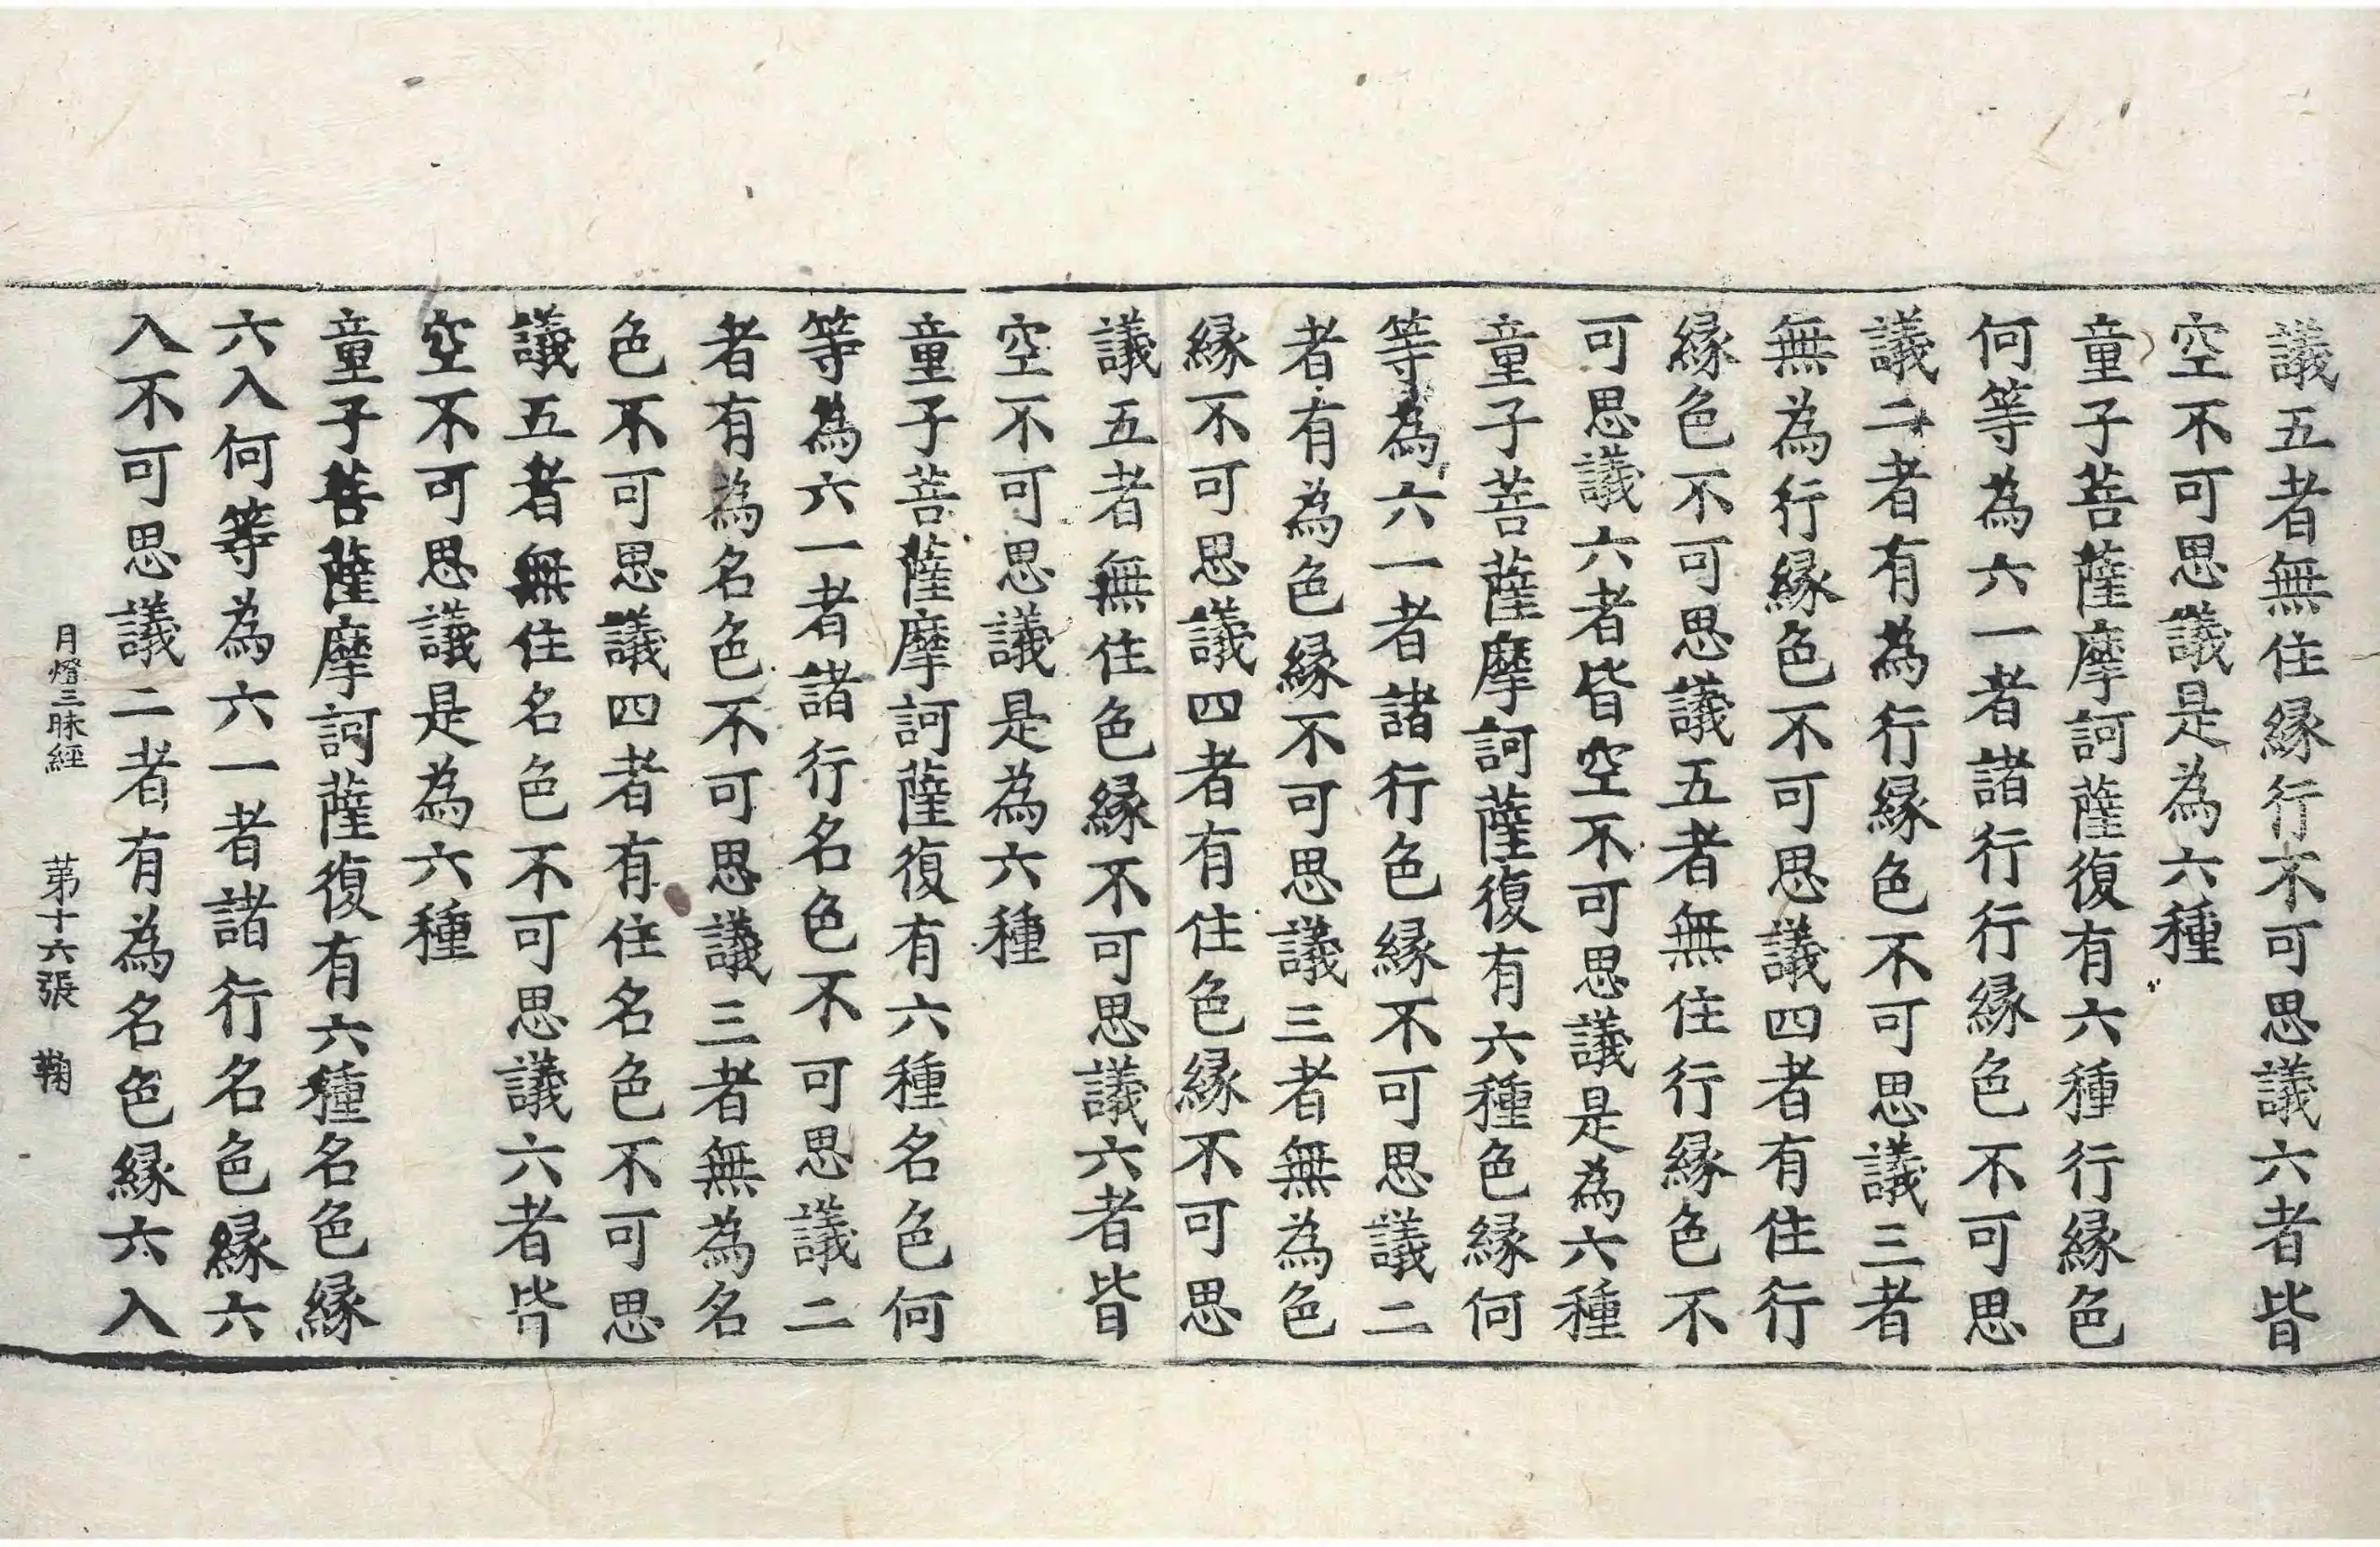 議五者無住縁行不可思議六者皆
空不可思議是為六種
童子菩薩摩訶薩復有六種行縁色
何等為六一者諸行行縁色不可思
議二者有為行縁色不可思議三者
無為行縁色不可思議四者有住行
縁色不可思議五者無住行縁色不
可思議六者皆空不可思議是為六種
童子菩薩摩訶薩復有六種色縁何
等為六一者諸行色縁不可思議二
者有為色縁不可思議三者無為色
縁不可思議四者有住色縁不可思
議五者無住色縁不可思議六者皆
空不可思議是為六種
童子菩薩摩訶薩復有六種名色何
等為六一者諸行名色不可思議二
者有為名色不可思議三者無為名
色不可思議四者有住名色不可思
議五者無住名色不可思議六者皆
空不可思議是為六種
童子菩薩摩訶薩復有六種名色縁
六入何等為六一者諸行名色縁六
入不可思議二者有為名色縁六入
月燈三昧經 第十六張 鞠